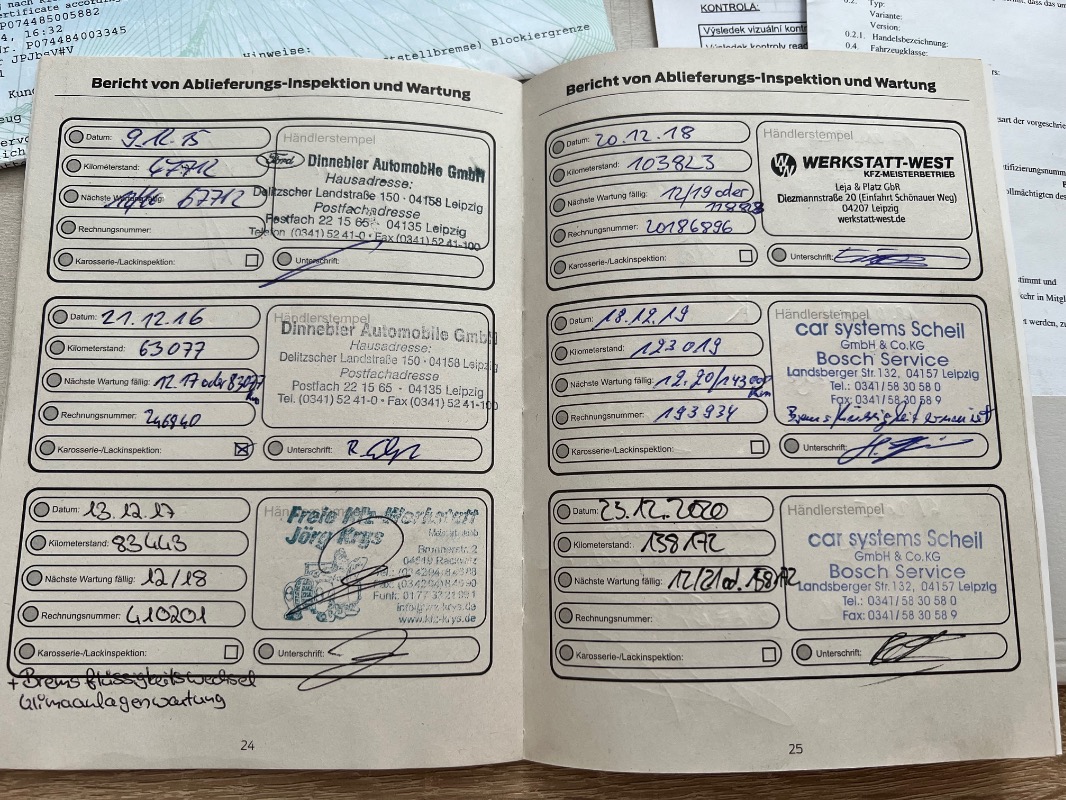 nach K
certificate accordin
P074485005882
4, 16:32
Nr. P074484003345
: JPJbaV#V
Hinweise:
tstellbremse) Blockiergrenze
Kund
KONTROLA:
Výsledek vizuální kontr
0.2. Typ:
Variante:
Version:
0.2.1. Handelsbezeichnung:
0.4. Fahrzeugklasse:
Bericht von Ablieferungs-Inspektion und Wartung
Datum: 9.12.15
Kilometerstand: 47712
Nächste Wartung fällig: 67712
Rechnungsnummer:
Karosserie-/Lackinspektion:
Händlerstempel
Ford Dinnebier Automobile GmbH
Hausadresse:
Delitzscher Landstraße 150 · 04158 Leipzig
Postfachadresse
Postfach 22 15 65 · 04135 Leipzig
Telefon (0341) 52 41-0 • Fax (0341) 52 41-100
Unterschrift:
Datum: 21.12.16
Kilometerstand: 63077
Nächste Wartung fällig: 12.17 oder 83077 km
Rechnungsnummer: 246840
Karosserie-/Lackinspektion: ☒
Händlerstempel
Dinnebier Automobile GmbH
Hausadresse:
Delitzscher Landstraße 150 · 04158 Leipzig
Postfachadresse
Postfach 22 15 65 - 04135 Leipzig
Tel. (0341) 52 41-0 • Fax (0341) 52 41-100
Unterschrift:
Datum: 13.12.17
Kilometerstand: 83443
Nächste Wartung fällig: 12/18
Rechnungsnummer: 410201
Karosserie-/Lackinspektion:
Freie Kfz-Werkstatt
Jörg Krys
www.kfz-krys.de
Unterschrift:
+ Bremsflüssigkeitswechsel
Klimaanlagenwartung
24
Bericht von Ablieferungs-Inspektion und Wartung
Datum: 20.12.18
Kilometerstand: 103823
Nächste Wartung fällig: 12/19 oder
Rechnungsnummer: 20186896
Karosserie-/Lackinspektion:
Händlerstempel
WERKSTATT-WEST
KFZ-MEISTERBETRIEB
Leja & Platz GbR
Diezmannstraße 20 (Einfahrt Schönauer Weg)
04207 Leipzig
werkstatt-west.de
Unterschrift:
Datum: 18.12.19
Kilometerstand: 123019
Nächste Wartung fällig: 12.20/143000 km
Rechnungsnummer: 193934
Karosserie-/Lackinspektion:
Händlerstempel
car systems Scheil
GmbH & Co.KG
Bosch Service
Landsberger Str. 132, 04157 Leipzig
Tel.: 0341/58 30 58 0
Fax: 0341/58 30 58 9
Bremsflüssigkeit erneuert
Unterschrift:
Datum: 23.12.2020
Kilometerstand: 138172
Nächste Wartung fällig: 12/21 od. 158172
Rechnungsnummer:
Karosserie-/Lackinspektion:
Händlerstempel
car systems Scheil
GmbH & Co.KG
Bosch Service
Landsberger Str. 132, 04157 Leipzig
Tel.: 0341/58 30 58 0
Fax: 0341/58 30 58 9
Unterschrift:
25